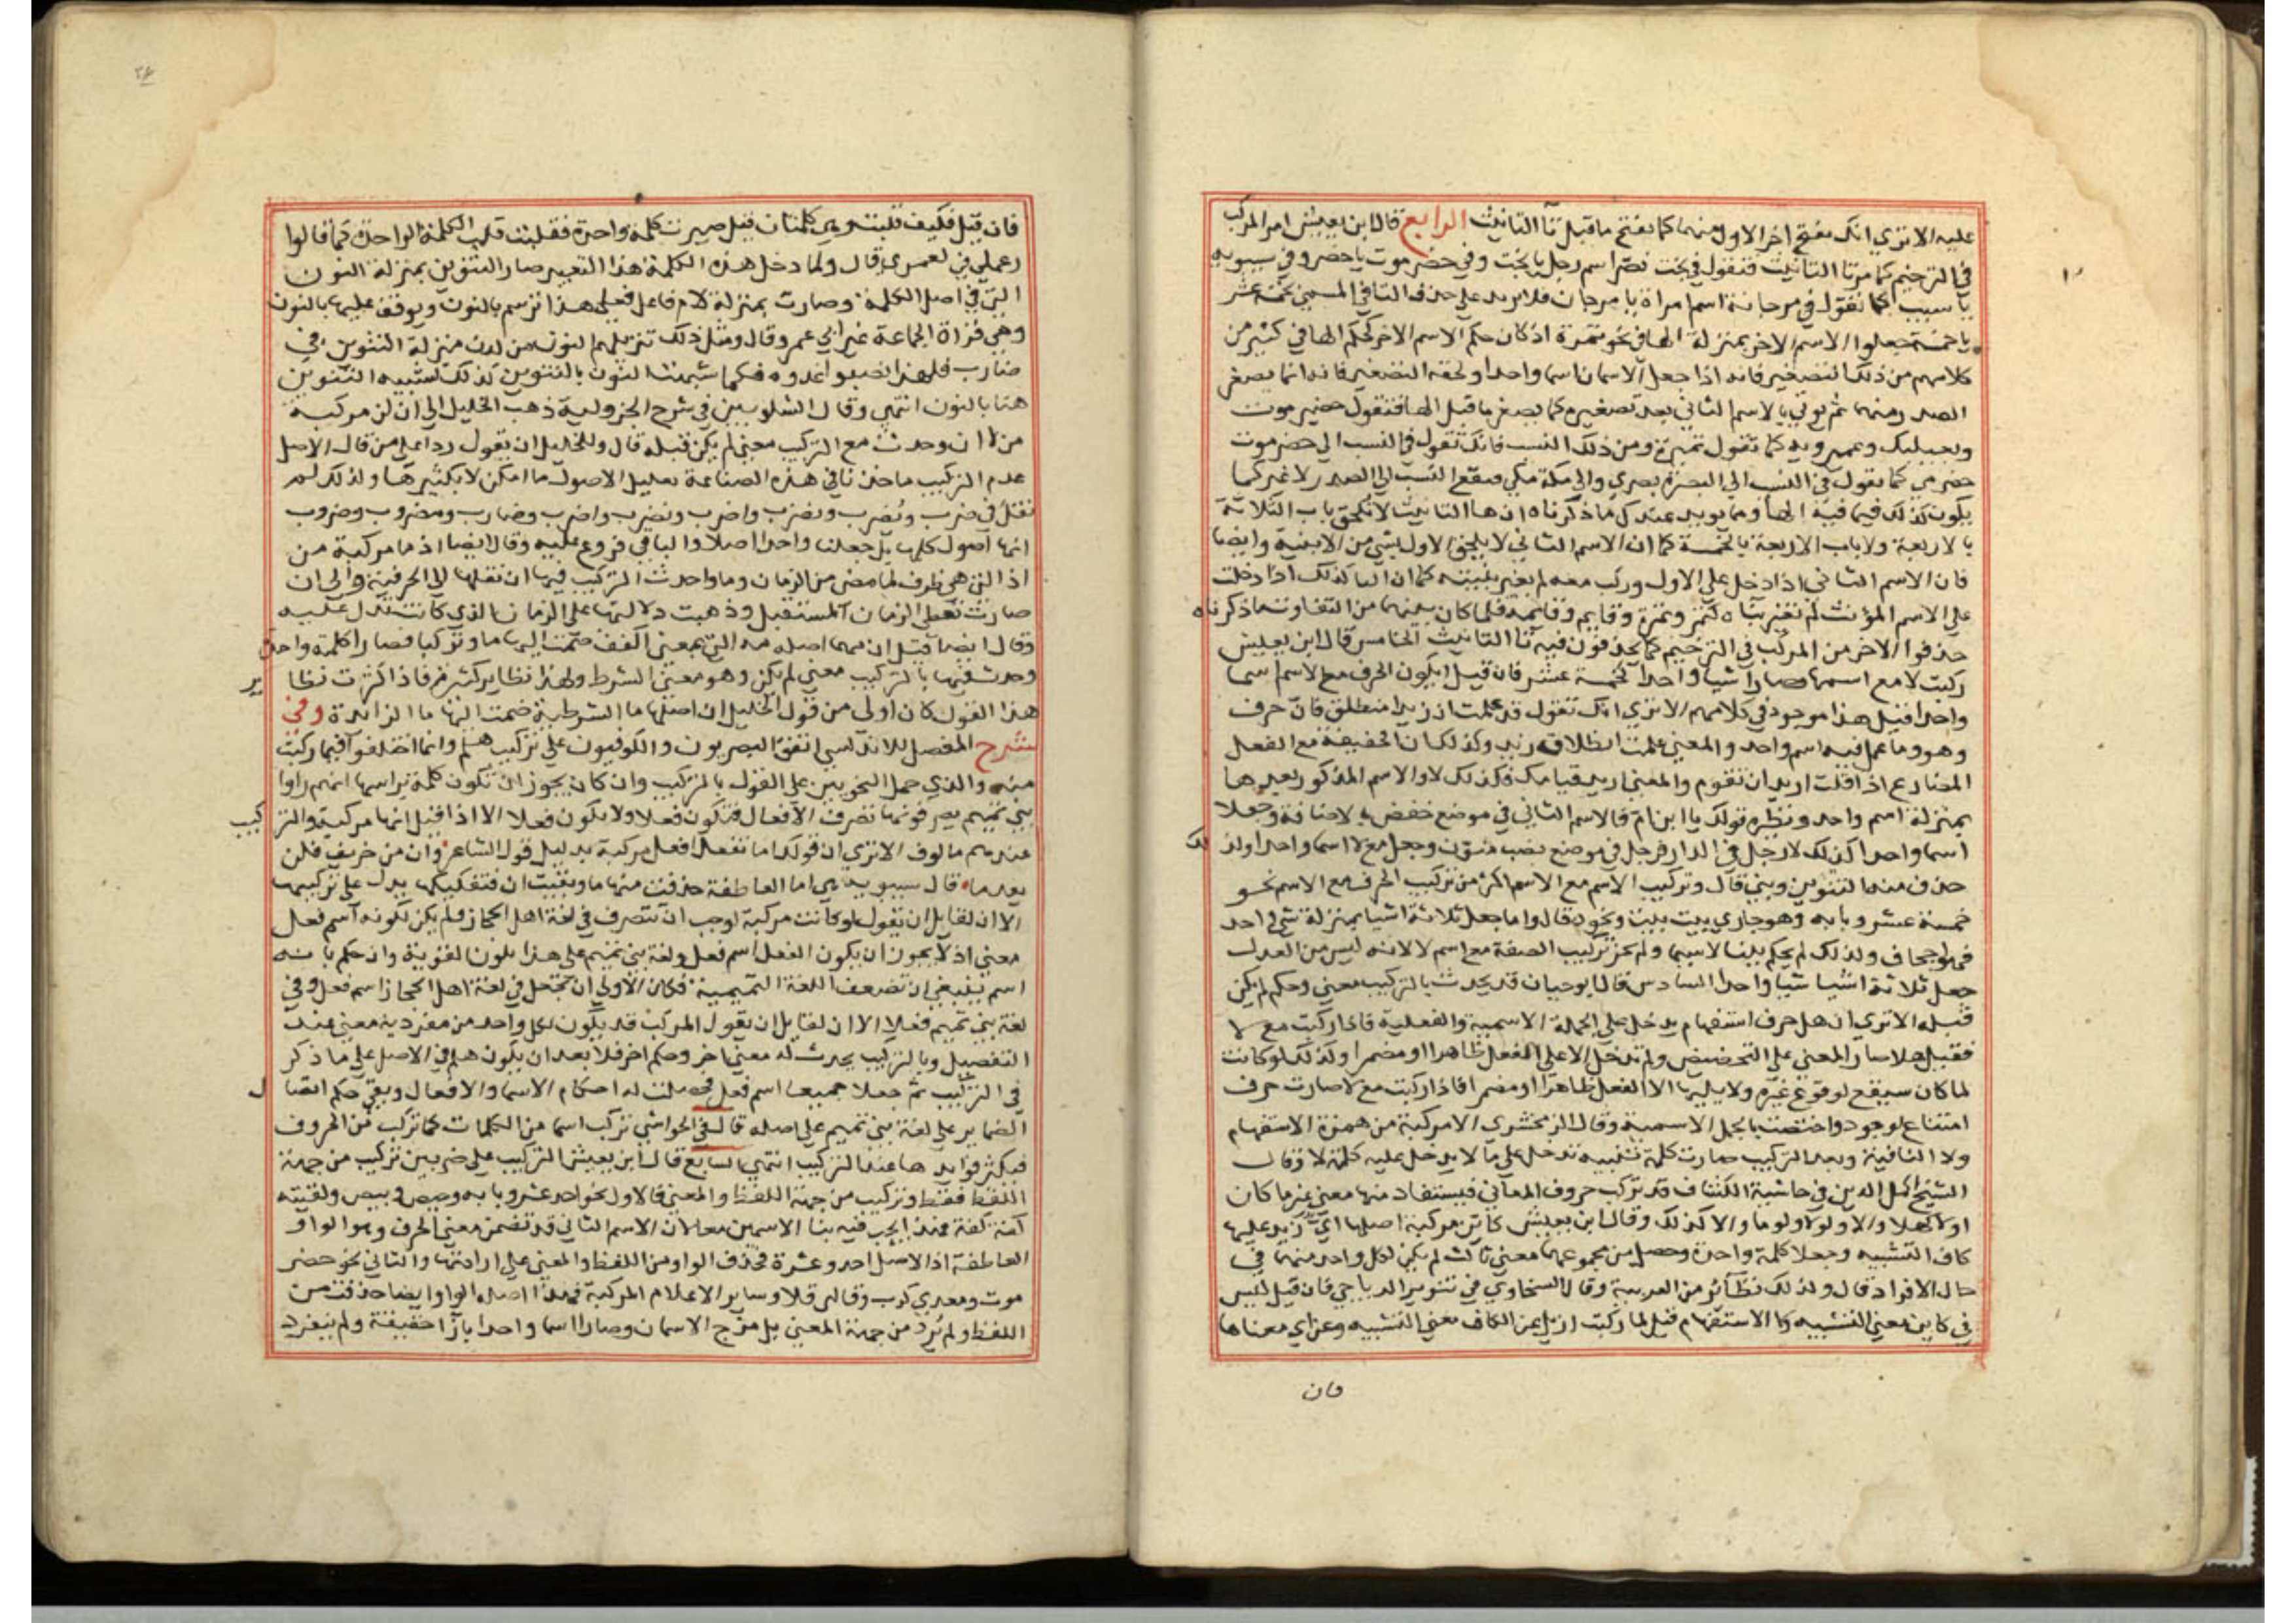 عليه الا تري انك تفتح اخر الاول منهما كما تفتح ما قبل تا التانيث الرابع قال ابن يعيش امر المركب
في الترخيم كامر تا التانيث فتقول في بخت نصر اسم رجل يا بخت وفي حضر موت يا حضر وفي سيبويه
يا سيب كما تقول في مرجانة اسم امراة يا مرجان فلا يزيد علي حذف التا في المسمي بخمسة عشر
يا خمسة جعلوا الاسم الاخر بمنزلة الها في نحو تمرة اذ كان حكم الاسم الاخر كحكم الها في كثير من
كلامهم من ذلك التصغير فانه اذا جعل الاسمان اسما واحدا ولحقه التصغير فانه انما يصغر
الصدر منهما ثم يوتي بالاسم الثاني بعد تصغيره كما يصغر ما قبل الها فتقول حضير موت
وبعيلبك وعميرويه كما تقول تميرة ومن ذلك النسب فانك تقول في النسب الي حضر موت
حضرمي كما تقول في النسب الي البصرة بصري والي مكة مكي فيقع النسب الي الصدر لا غير كما
يكون كذلك فيما فيه الها ومما يويد عندك ما ذكرناه ان ها التانيث لا تلحق باب الثلاثة
بالاربعة ولا باب الاربعة بالخمسة كما ان الاسم الثاني لا يلحق الاول بشي من الابنية وايضا
فان الاسم الثاني اذا دخل علي الاول وركب معه لم يغير بنيته كما ان التا كذلك اذا دخلت
علي الاسم المؤنث لم تغير بناه كتمر وتمرة وقايم وقايمة فلما كان بينهما من التقاوت ما ذكرناه
حذفوا الاخر من المركب في الترخيم كما يحذفون فيه تا التانيث الخامس قال ابن يعيش
ركبت لا مع اسمها وصارا شيا واحدا كخمسة عشر فان قيل ايكون الحرف مع الاسم اسما
واحدا قيل هذا موجود في كلامهم الا تري انك تقول قد علمت ان زيدا منطلق فان حرف
وهو وما عمل فيه اسم واحد والمعني علمت انطلاق زيد وكذلك ان الخفيفة مع الفعل
المضارع اذا قلت اريد ان تقوم والمعني اريد قيامك فكذلك لا والاسم المذكور بعدها
بمنزلة اسم واحد ونظيره قولك يا ابن ام فالاسم الثاني في موضع خفض بالاضافة وجعلا
اسما واحدا كذلك لا رجل في الدار فرجل في موضع نصب منون وجعل مع لا اسما واحدا ولذلك
حذف منه التنوين وبني قال وتركيب الاسم مع الاسم اكثر من تركيب الحرف مع الاسم نحو
خمسة عشر وبابه وهو جاري بيت بيت ونحوه قالوا ما جعل ثلاثة اشيا بمنزلة شي واحد
فهو اجحاف ولذلك لم يحكم ببنا لاسيما ولم يجز تركيب الصفة مع اسم لا لانه ليس من العدل
جعل ثلاثة اشيا شيا واحدا السادس قال ابو حيان قد يحدث بالتركيب معني وحكم لم يكن
قبله الا تري ان هل حرف استفهام يدخل علي الجملة الاسمية والفعلية فاذا ركبت مع لا
فقيل هلا صار المعني علي التحضيض ولم تدخل الا علي الفعل ظاهرا او مضمرا وكذلك لو كانت
لما كان سيقع لوقوع غيره ولا يليها الا الفعل ظاهرا او مضمرا فاذا ركبت مع لا صارت حرف
امتناع لوجود واختصت بالجمل الاسمية وقال الزمخشري الا مركبة من همزة الاستفهام
ولا النافية وبعد التركيب صارت كلمة تنبيه تدخل علي ما لا يدخل عليه كلمة لا وقال
الشيخ اكمل الدين في حاشية الكشاف قد تركب حروف المعاني فيستفاد منها معني غير ما كان
اولا كهلا والا ولولا ولوما والا كذلك وقال ابن يعيش كاين مركبة اصلها اي زيد عليها
كاف التشبيه وجعلا كلمة واحدة وحصل من مجموعهما معني ثالث لم يكن لكل واحد منهما في
حال الافراد قال ولذلك نظائر من العربية وقال السخاوي في تنوير الدياجي فان قيل ليس
في كاين معني التشبيه ولا الاستفهام قيل لما ركبت ازيل عن الكاف معني التشبيه وعن اي معناها
فان
فان قيل فكيف قلبت وهي كلمتان قيل صيرت كلمة واحدة فقلبت قلب الكلمة الواحدة كما قالوا
رعملي في لعمري قال ولما دخل هذه الكلمة هذا التغيير صار التنوين بمنزلة النون
التي في اصل الكلمة وصارت بمنزلة لام فاعل فعلي هذا ترسم بالنون ويوقف عليها بالنون
وهي قراة الجماعة غير ابي عمرو وقال ومثل ذلك تنزيلهم النون من لدن منزلة التنوين في
ضارب فلهذا نصبوا غدوه فكما شبهت النون بالتنوين كذلك تشبيه التنوين
هنا بالنون انتهي وقال الشلوبين في شرح الجزولية ذهب الخليل الي ان لن مركبة
من لا ان وحدث مع التركيب معني لم يكن قبله قال وللخليل ان يقول ردا علي من قال الاصل
عدم التركيب ماخذنا في هذه الصناعة تعليل الاصول ما امكن لا تكثيرها ولذلك لم
نقل في ضرب ويضرب وتضرب واضرب ونضرب واضرب وضارب ومضروب وضروب
انها اصول كلها بل جعلنا واحدا اصلا والباقي فروع عليه وقال ايضا اذ ما مركبة من
اذ التي هي ظرف لما مضي من الزمان وما واحدث التركيب فيها ان نقلها الي الحرفية والي ان
صارت تعطي الزمان المستقبل وذهبت دلالتها علي الزمان الذي كانت تدل عليه
وقال ايضا قيل ان مهما اصله مه التي بمعني اكفف ضمت اليها ما وتركبا فصارا كلمة واحدة
وحدث فيها بالتركيب معني لم يكن وهو معني الشرط ولهذا نظاير كثيرة فاذا كثرت نظاير
هذا القول كان اولي من قول الخليل ان اصلها ما الشرطية ضمت اليها ما الزائدة وفي
شرح المفصل للاندلسي اتفق البصريون والكوفيون علي تركيب هلم وانما اختلفوا فيما ركبت
منه والذي حمل النحويين علي القول بالتركيب وان كان يجوز ان تكون كلمة براسها انهم راوا
بني تميم يصرفونها تصرف الافعال فتكون فعلا ولا يكون فعلا الا اذا قيل انها مركبة والتركيب
عندهم مالوف الا تري ان قولك اما تفعل افعل مركبة بدليل قول الشاعر وان من خريف فلن
يعدما قال سيبويه هي اما العاطفة حذفت منها ما وبقيت ان فتفكيكها يدل علي تركيبها
الا ان لقايل ان يقول لو كانت مركبة لوجب ان تتصرف في لغة اهل الحجاز ولم يكن لكونه اسم فعل
معني اذ لا يجوز ان يكون الفعل اسم فعل ولغة بني تميم علي هذا يكون لغوية وان حكم بانه
اسم ينبغي ان تضعف اللغة التميمية فكان الاولي ان تجعل في لغة اهل الحجاز اسم فعل وفي
لغة بني تميم فعلا الا ان لقايل ان يقول المركب قد يكون لكل واحد من مفرديه معني عند
التفصيل وبالتركيب يحدث له معني اخر وحكم اخر فلا بعد ان يكون هلم في الاصل علي ما ذكر
في التركيب ثم جعلا جميعا اسم فعل فحصلت له احكام الاسما والافعال وبقي حكم اتصال
الضماير علي لغة بني تميم علي اصله قال في الحواشي تركب اسما من الكلمات كما تركب من الحروف
فتكثر فوايدها عند التركيب انتهي السابع قال ابن يعيش التركيب علي ضربين تركيب من جهة
اللفظ فقط وتركيب من جهة اللفظ والمعني فالاول نحو احد عشر وبابه وحيص بيص ولقيته
كفة كفة فهذا يجب فيه بنا الاسمين معا لان الاسم الثاني قد تضمن معني الحرف وهو الواو
العاطفة اذ الاصل احد وعشرة فحذف الواو من اللفظ والمعني علي ارادتها والثاني نحو حضر
موت ومعدي كرب وقالي قلا وساير الاعلام المركبة فهذا اصله الواو ايضا حذفت من
اللفظ ولم تُرِد من جهة المعني بل مزج الاسمان وصارا اسما واحدا بازا حقيقة ولم ينفرد